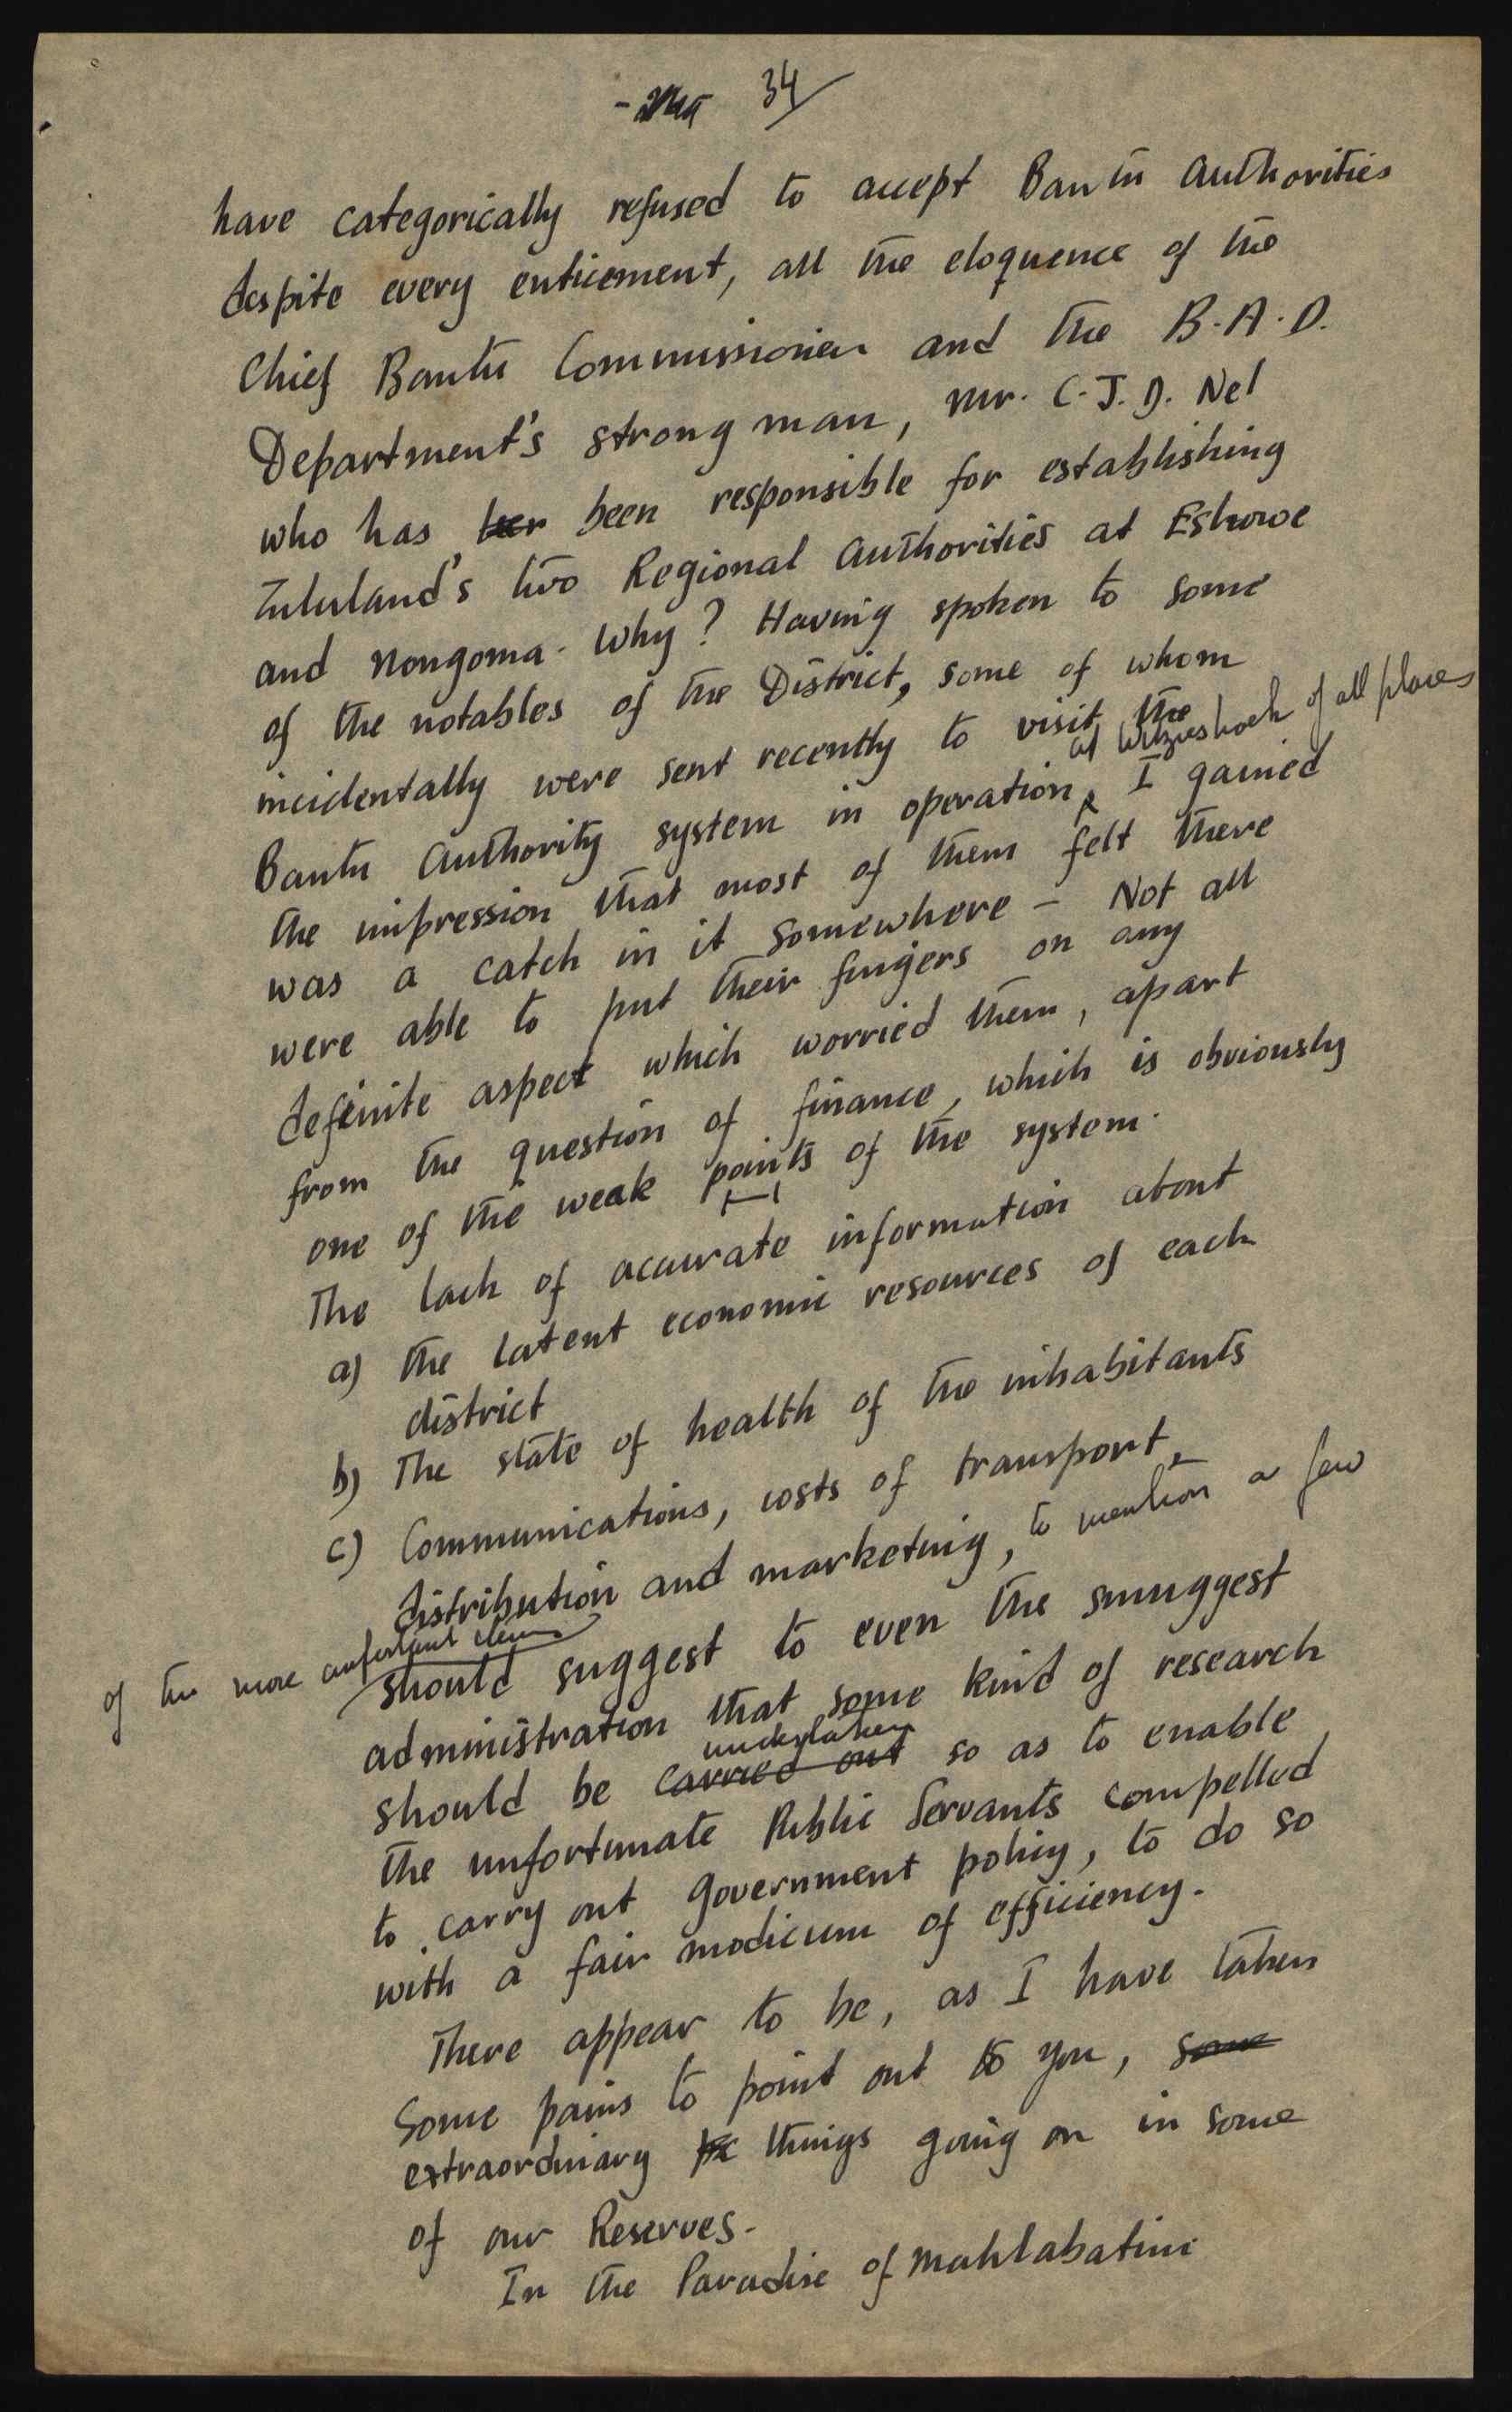 34
have categorically refused to accept Bantu Authorities
despite every enticement, all the eloquence of the
Chief Bantu Commissioner and the B.A.D.
Department's strong man, Mr. C.J.D. Nel
who has been responsible for establishing
Zululand's two Regional Authorities at Eshowe
and Nongoma. Why? Having spoken to some
of the notables of the District, some of whom
incidentally were sent recently to visit the
at Witzieshoek of all places
Bantu Authority system in operation, I gained
the impression that most of them felt there
was a catch in it somewhere – Not all
were able to put their fingers on any
definite aspect which worried them, apart
from the question of finance, which is obviously
one of the weak points of the system.
The lack of accurate information about
a) the latent economic resources of each
district
b) The state of health of the inhabitants
c) Communications, costs of transport,
distribution and marketing, to mention a few
of the more important items
should suggest to even the smuggest
administration that some kind of research
undertaken
should be carried out so as to enable
the unfortunate Public Servants compelled
to carry out government policy, to do so
with a fair modicum of efficiency.
There appear to be, as I have taken
some pains to point out to you, some
extraordinary things going on in some
of our Reserves.
In the Paradise of Mahlabatini